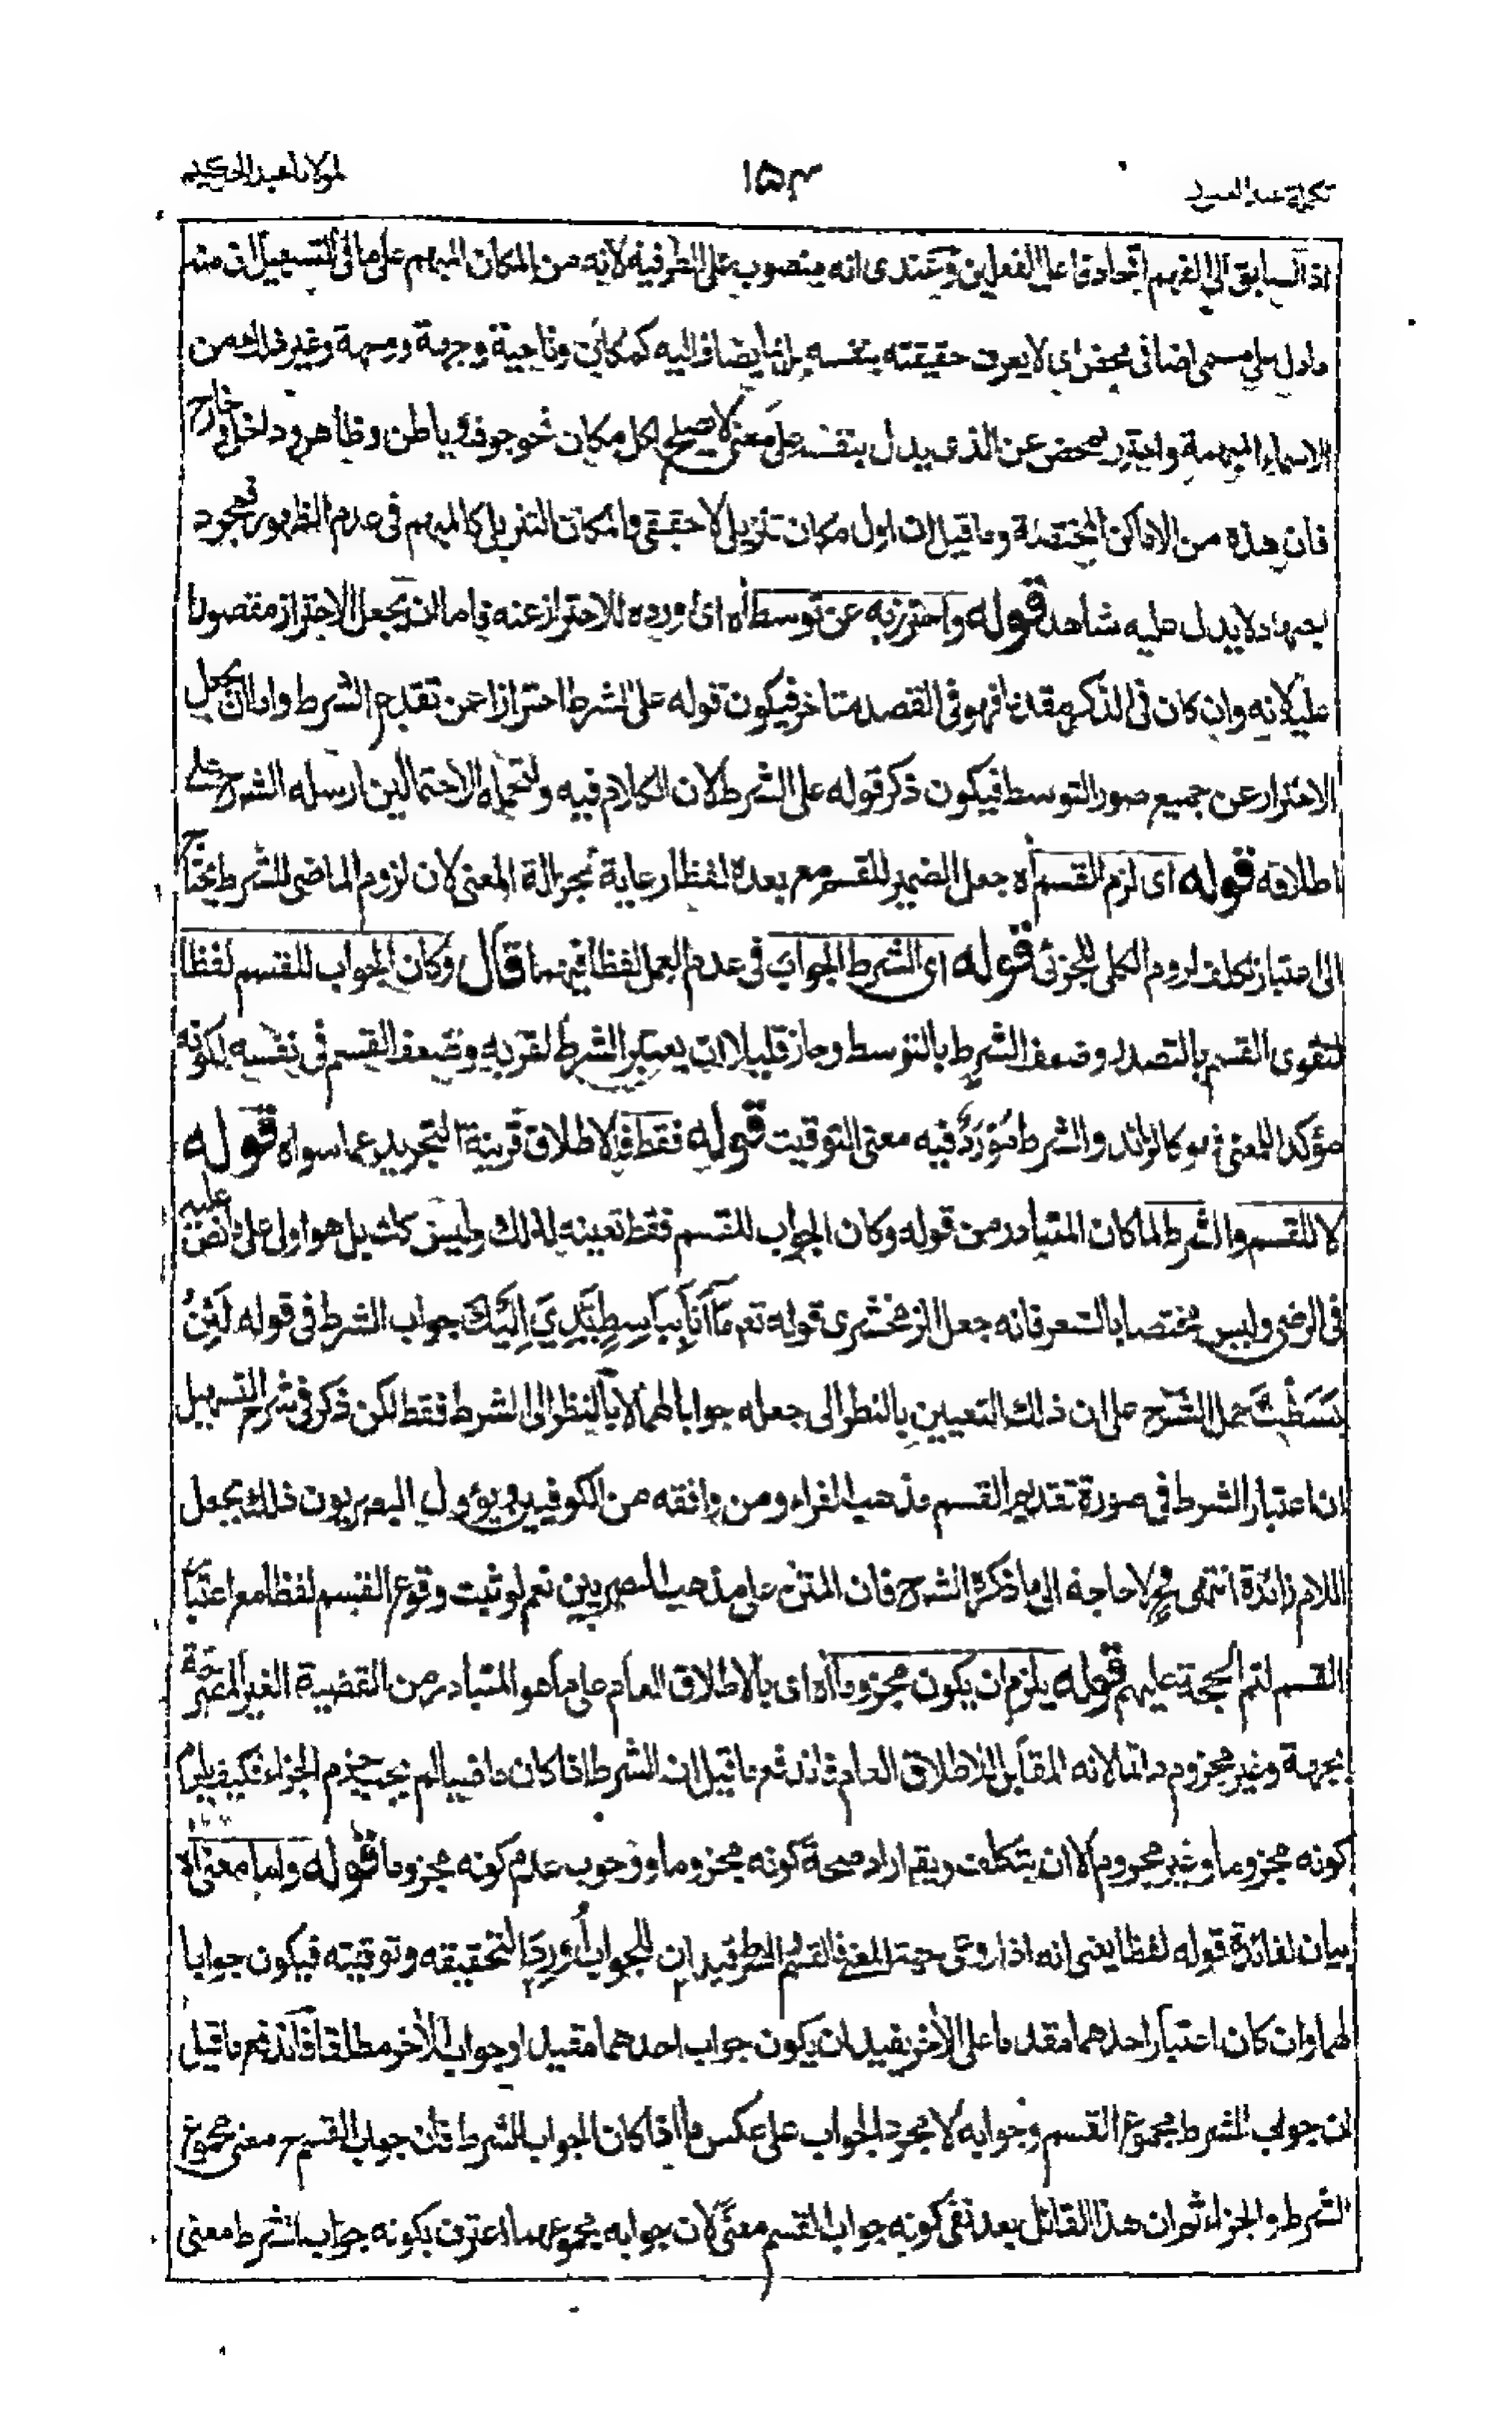 تكملة عبد الغفور
١٥٣
لمولانا عبد الحكيم
اذ السابق الى الفهم اتحاد فاعلي الفعلين وعندى انه منصوب على الظرفية لانه من المكان المبهم على ما فى التسهيل ان منه
ما دل على مسمى اضافى محض اى لا يعرف حقيقته بنفسه بل بما يضاف اليه كمكان وناحية وجهة وغير ذلك من
الاسماء المبهمة واحترز بمحض عن الذى يدل بنفسه على معنى لا يصلح لكل مكان نحو جوف وباطن وظاهر وداخل وخارج
فان هذه من الاماكن المختصة وما قيل ان اول مكان تنزيلى لا حقيقى والمكان التنزيلى كالمبهم فى عدم الظهور فمجرد
لا يدل عليه شاهد قوله واحترز به عن توسط اه اى اورده للاحتراز عنه فاما ان يجعل الاحتراز مقصورا
عليه لانه وان كان فى الذكر مقدما فهو فى القصد متاخر فيكون قوله على الشرط احترازا عن تقدم الشرط واما ان يجعل
الاحتراز عن جميع صور التوسط فيكون ذكر قوله على الشرط لان الكلام فيه ولتحمله الاحتمالين ارسله الشرح على
اطلاقه قوله اى لزم القسم اه جعل الضمير للقسم مع بعده لفظا رعاية لجزالة المعنى لان لزوم الماضى للشرط يحتاج
الى اعتبار تكلف لزوم الكلى للجزئى قوله اى الشرط الجواب فى عدم العمل لفظا فيهما قال وكان الجواب للقسم لفظا
لتقوى القسم بالتصدر وضعف الشرط بالتوسط وجاز قليلا ان يعتبر الشرط لقربه وضعف القسم فى نفسه لكونه
مؤكد المعنى فهو كالزائد والشرط مورد فيه معنى التوقيت قوله فقط فالاطلاق قرينة التجريد عما سواه قوله
لا للقسم والشرط لما كان المتبادر من قوله وكان الجواب للقسم فقط تعينه لذلك وليس كذلك بل هو اولى على ما نص عليه
فى الرضى وليس مختصا بالشعر فانه جعل الزمخشرى قوله تعم مَا اَنَا بِبَاسِطٍ يَدِيَ اِلَيْكَ جواب الشرط فى قوله لَئِنْ
بَسَطْتَّ حمل الشرح على ان ذلك التعيين بالنظر الى جعله جوابا لهما لا بالنظر الى الشرط فقط لكن ذكر فى شرح التسهيل
ان اعتبار الشرط فى صورة تقديم القسم مذهب الفراء ومن وافقه من الكوفيين ويؤول البصريون ذلك بجعل
اللام زائدة انتهى فح لا حاجة الى ما ذكره الشرح فان المتن على مذهب البصريين نعم لو ثبت وقوع القسم لفظا مع اعتبار
القسم لتم الحجة عليهم قوله يلزم ان يكون مجزوما اه اى بالاطلاق العام على ما هو المتبادر من القضية الغير المعتبرة
بجهة وغير مجزوم دائما لانه المقابل للاطلاق العام فاندفع ما قيل ان الشرط اذا كان ماضيا لم يجب جزم الجزاء فكيف يلزم
كونه مجزوما وغير مجزوم الا ان يتكلف ويقم اراد صحة كونه مجزوما ووجوب عدم كونه مجزوما قوله واما معنى اه
بيان لفائدة قوله لفظا يعنى انه اذا روعى جهة المعنى فالقسم والشرط قيدان للجواب اوردا لتحقيقه وتوقيته فيكون جوابا
لهما وان كان اعتبار احدهما مقدما على الآخر يفيد ان يكون جواب احدهما مقيدا وجواب الآخر مطلقا فاندفع ما قيل
ان جواب الشرط مجموع القسم وجوابه لا مجرد الجواب على عكس ما اذا كان الجواب للشرط فان جواب القسم ح معنى مجموع
الشرط والجزاء ثم ان هذا القائل بعد نفى كونه جواب القسم معنى لان جوابه مجموعهما اعترف بكونه جواب الشرط معنى